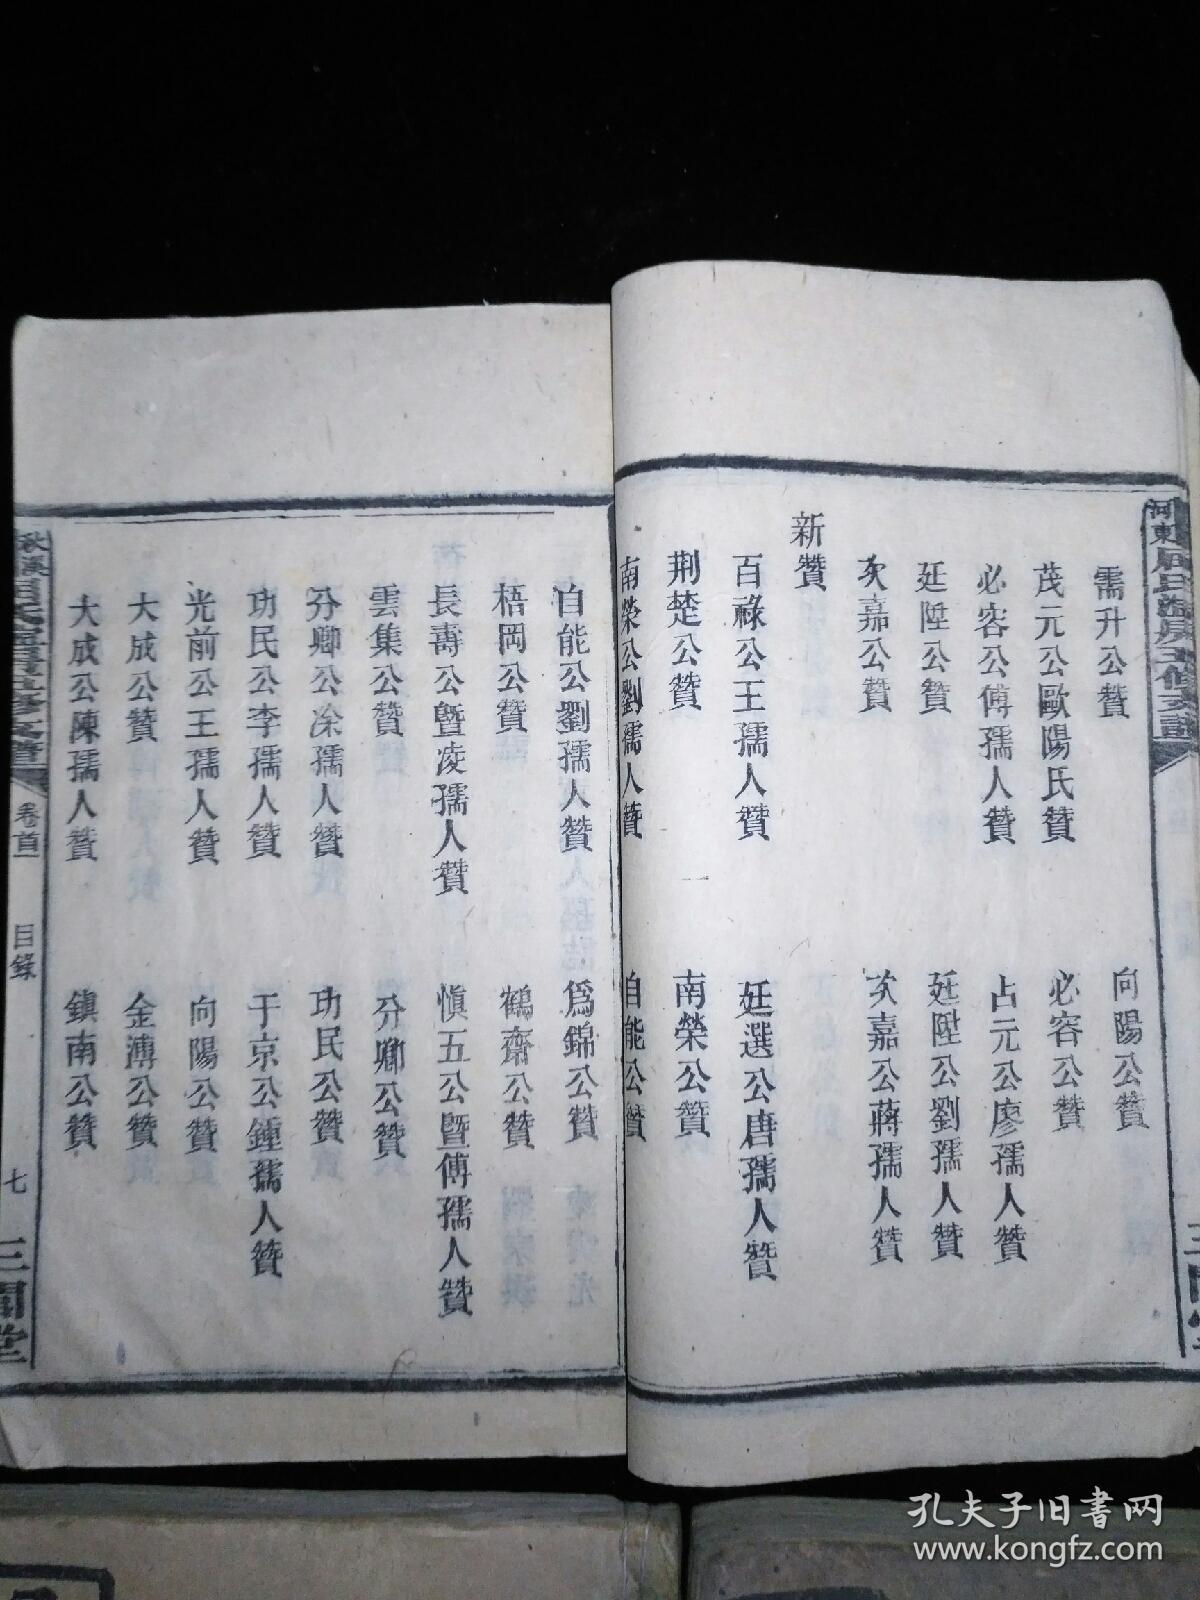 儒升公贊
向陽公贊
茂元公歐陽氏贊
必容公贊
必容公傅孺人贊
占元公廖孺人贊
廷陞公贊
廷陞公劉孺人贊
次嘉公贊
次嘉公蔣孺人贊
新贊
百祿公王孺人贊
廷選公唐孺人贊
荆楚公贊
南榮公贊
南榮公劉孺人贊
自能公贊
自能公劉孺人贊
爲錦公贊
梧岡公贊
鶴齋公贊
長壽公暨凌孺人贊
愼五公暨傅孺人贊
雲集公贊
分卿公贊
分卿公凃孺人贊
功民公贊
功民公李孺人贊
于京公鍾孺人贊
光前公王孺人贊
向陽公贊
大成公贊
金溥公贊
大成公陳孺人贊
鎮南公贊
卷首一
目錄
七
三閣堂
孔夫子旧书网
www.kongfz.com